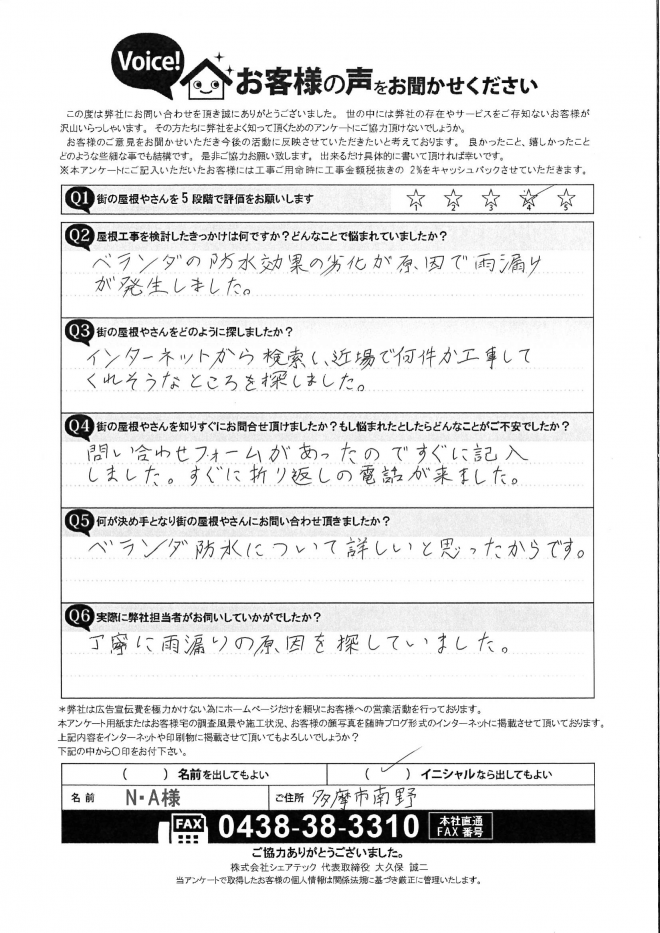 Voice!
お客様の声をお聞かせください
この度は弊社にお問い合わせを頂き誠にありがとうございました。 世の中には弊社の存在やサービスをご存知ないお客様が
沢山いらっしゃいます。 その方たちに弊社をよく知って頂くためのアンケートにご協力頂けないでしょうか。
お客様のご意見をお聞かせいただき今後の活動に反映させていただきたいと考えております。 良かったこと、嬉しかったこと
どのような些細な事でも結構です。 是非ご協力お願い致します。 出来るだけ具体的に書いて頂ければ幸いです。
※本アンケートにご記入いただいたお客様には工事ご用命時に工事金額税抜きの 2%をキャッシュバックさせていただきます。
Q1 街の屋根やさんを5段階で評価をお願いします
1 2 3 4 5
Q2 屋根工事を検討したきっかけは何ですか?どんなことで悩まれていましたか?
ベランダの防水効果の劣化が原因で雨漏り
が発生しました。
Q3 街の屋根やさんをどのように探しましたか?
インターネットから検索し、近場で何件か工事して
くれそうなところを探しました。
Q4 街の屋根やさんを知りすぐにお問合せ頂けましたか?もし悩まれたとしたらどんなことがご不安でしたか?
問い合わせフォームがあったのですぐに記入
しました。すぐに折り返しの電話が来ました。
Q5 何が決め手となり街の屋根やさんにお問い合わせ頂きましたか?
ベランダ防水について詳しいと思ったからです。
Q6 実際に弊社担当者がお伺いしていかがでしたか?
丁寧に雨漏りの原因を探していました。
*弊社は広告宣伝費を極力かけない為にホームページだけを頼りにお客様への営業活動を行っております。
本アンケート用紙またはお客様宅の調査風景や施工状況、お客様の顔写真を随時ブログ形式のインターネットに掲載させて頂いております。
上記内容をインターネットや印刷物に掲載させて頂いてもよろしいでしょうか?
下記の中から〇印をお付下さい。
( ) 名前を出してもよい ( ) イニシャルなら出してもよい
名前 N・A様 ご住所 多摩市南野
FAX 0438-38-3310 本社直通 FAX番号
ご協力ありがとうございました。
株式会社シェアテック 代表取締役 大久保 誠二
当アンケートで取得したお客様の個人情報は関係法規に基づき厳正に管理いたします。